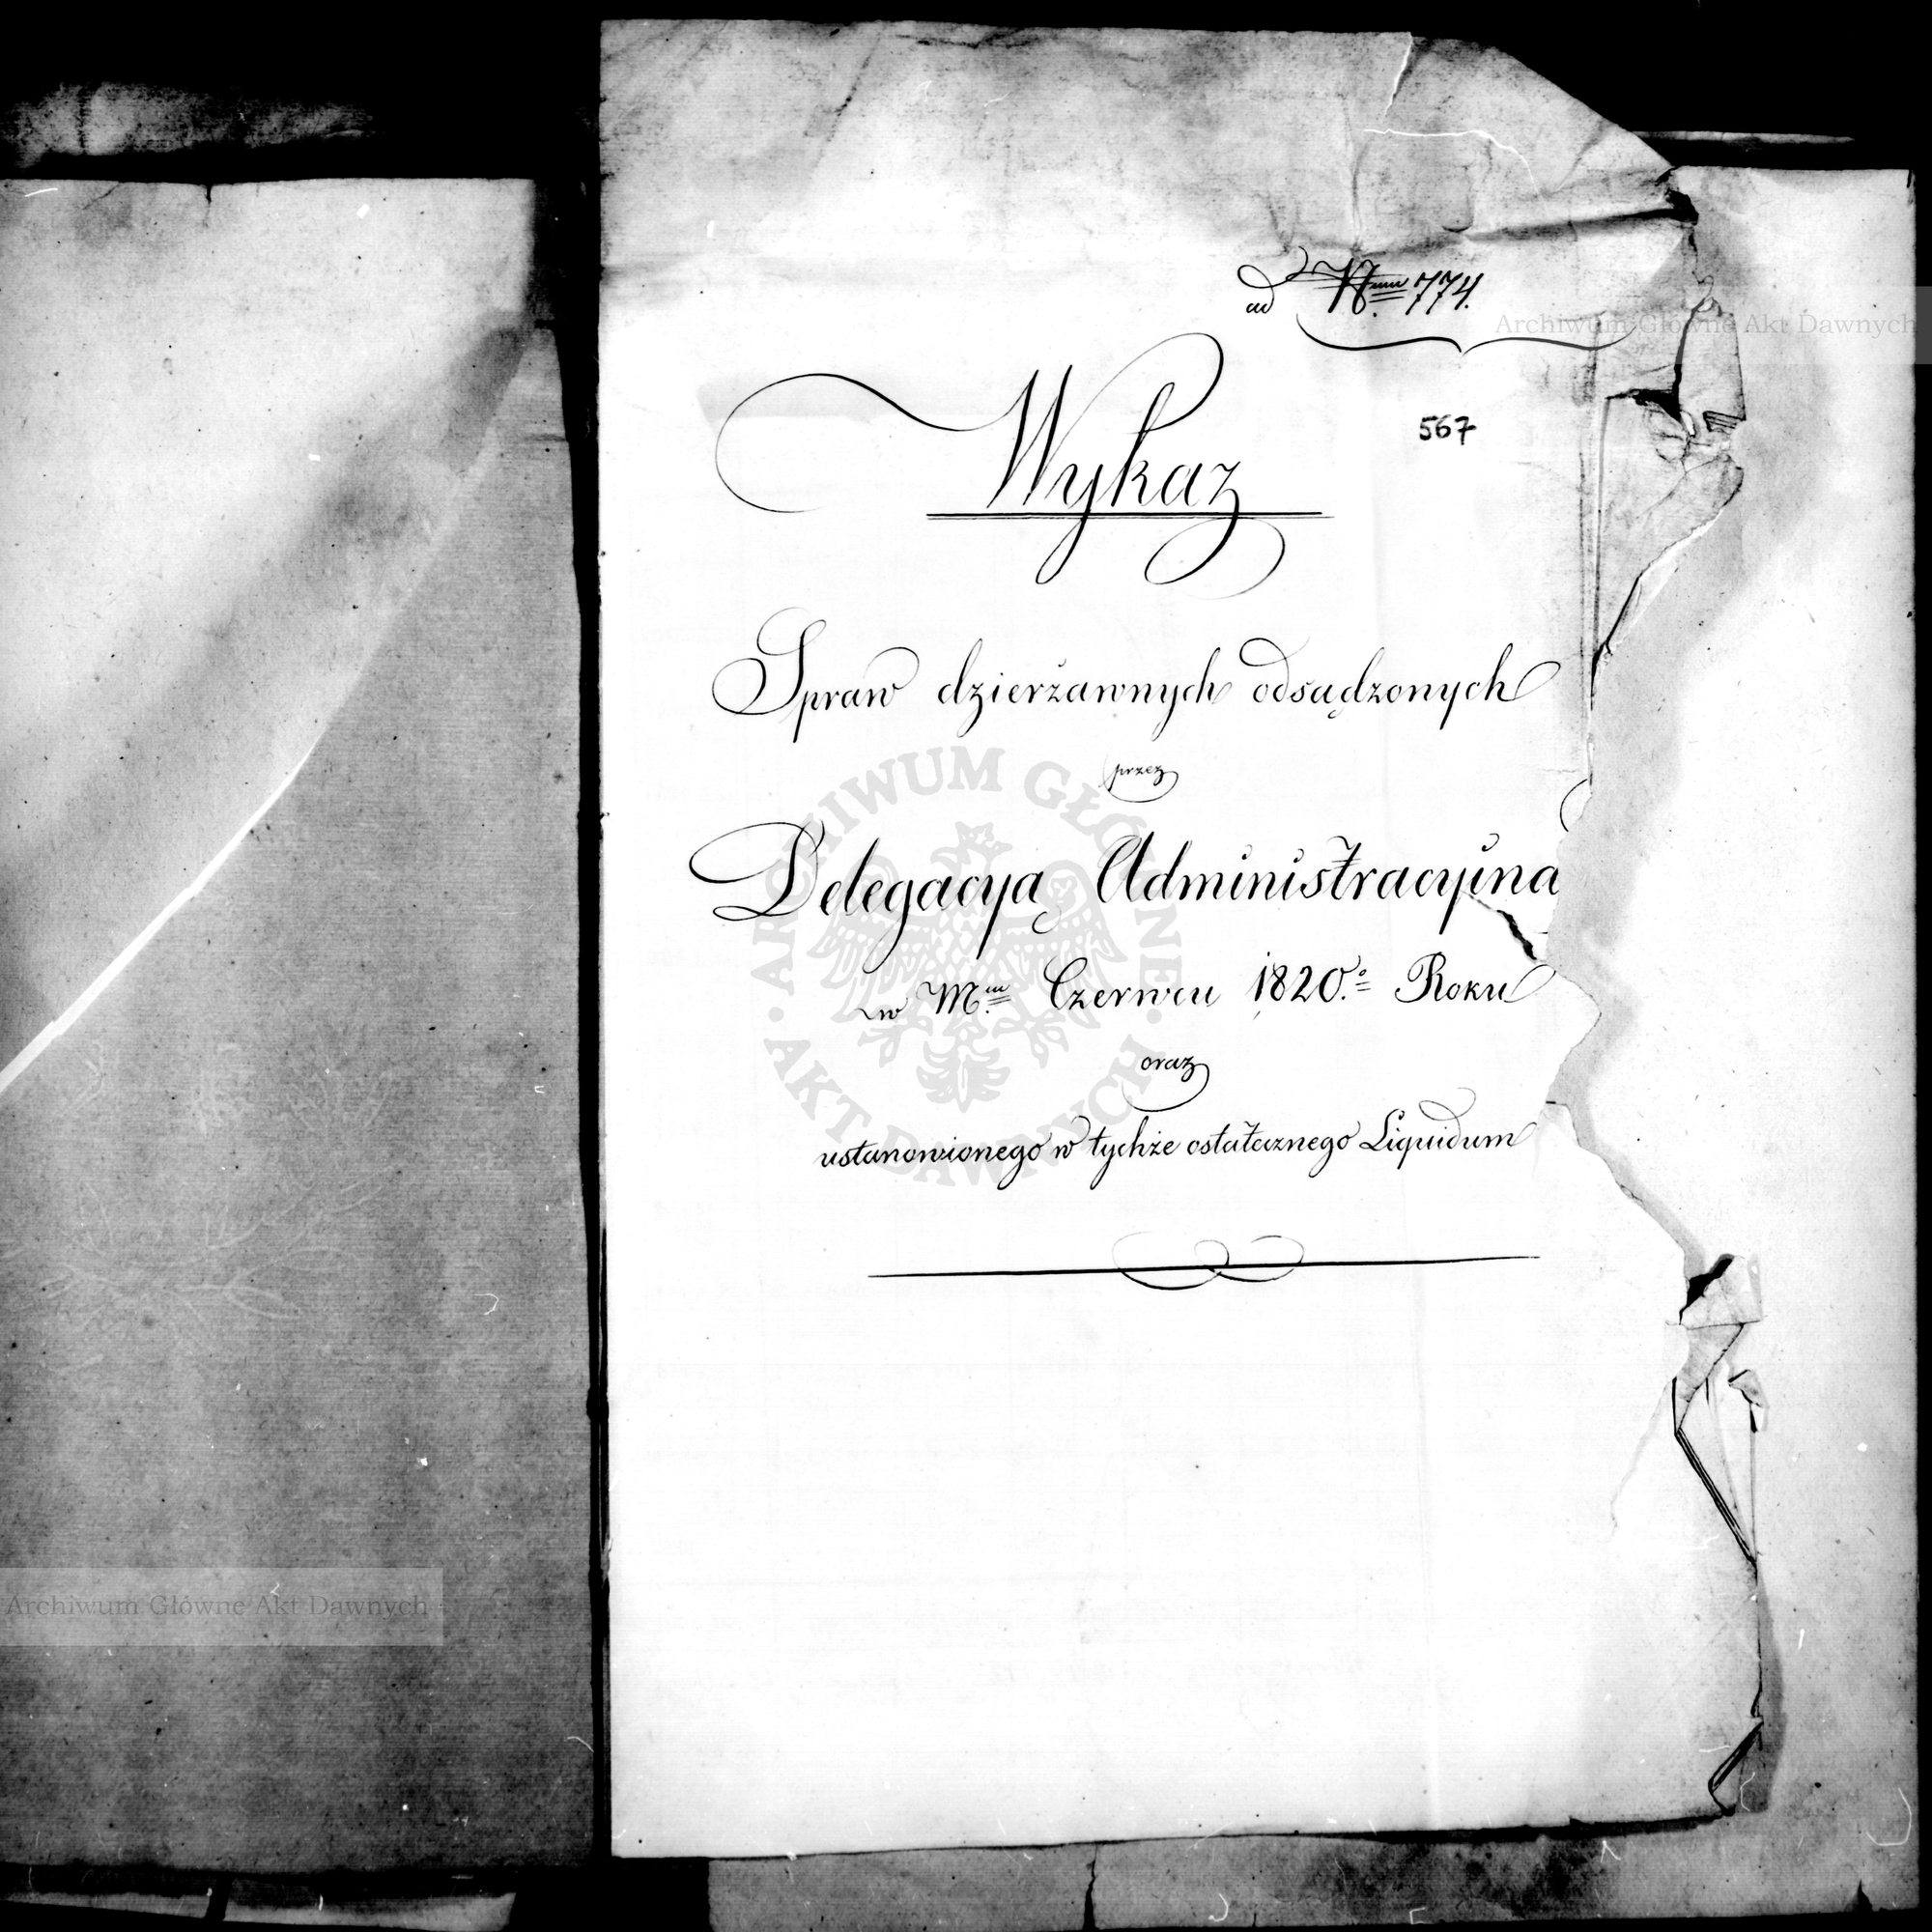 ad Num 774.
567
Wykaz
Spraw dzierżawnych odsądzonych
przez
Delegacyą Administracyina
w Mcu Czerwcu 1820.o Roku
oraz
ustanowionego w tychże ostatecznego Liquidum
Archiwum Główne Akt Dawnych
ARCHIWUM GŁÓWNE AKT DAWNYCH
Archiwum Główne Akt Dawnych